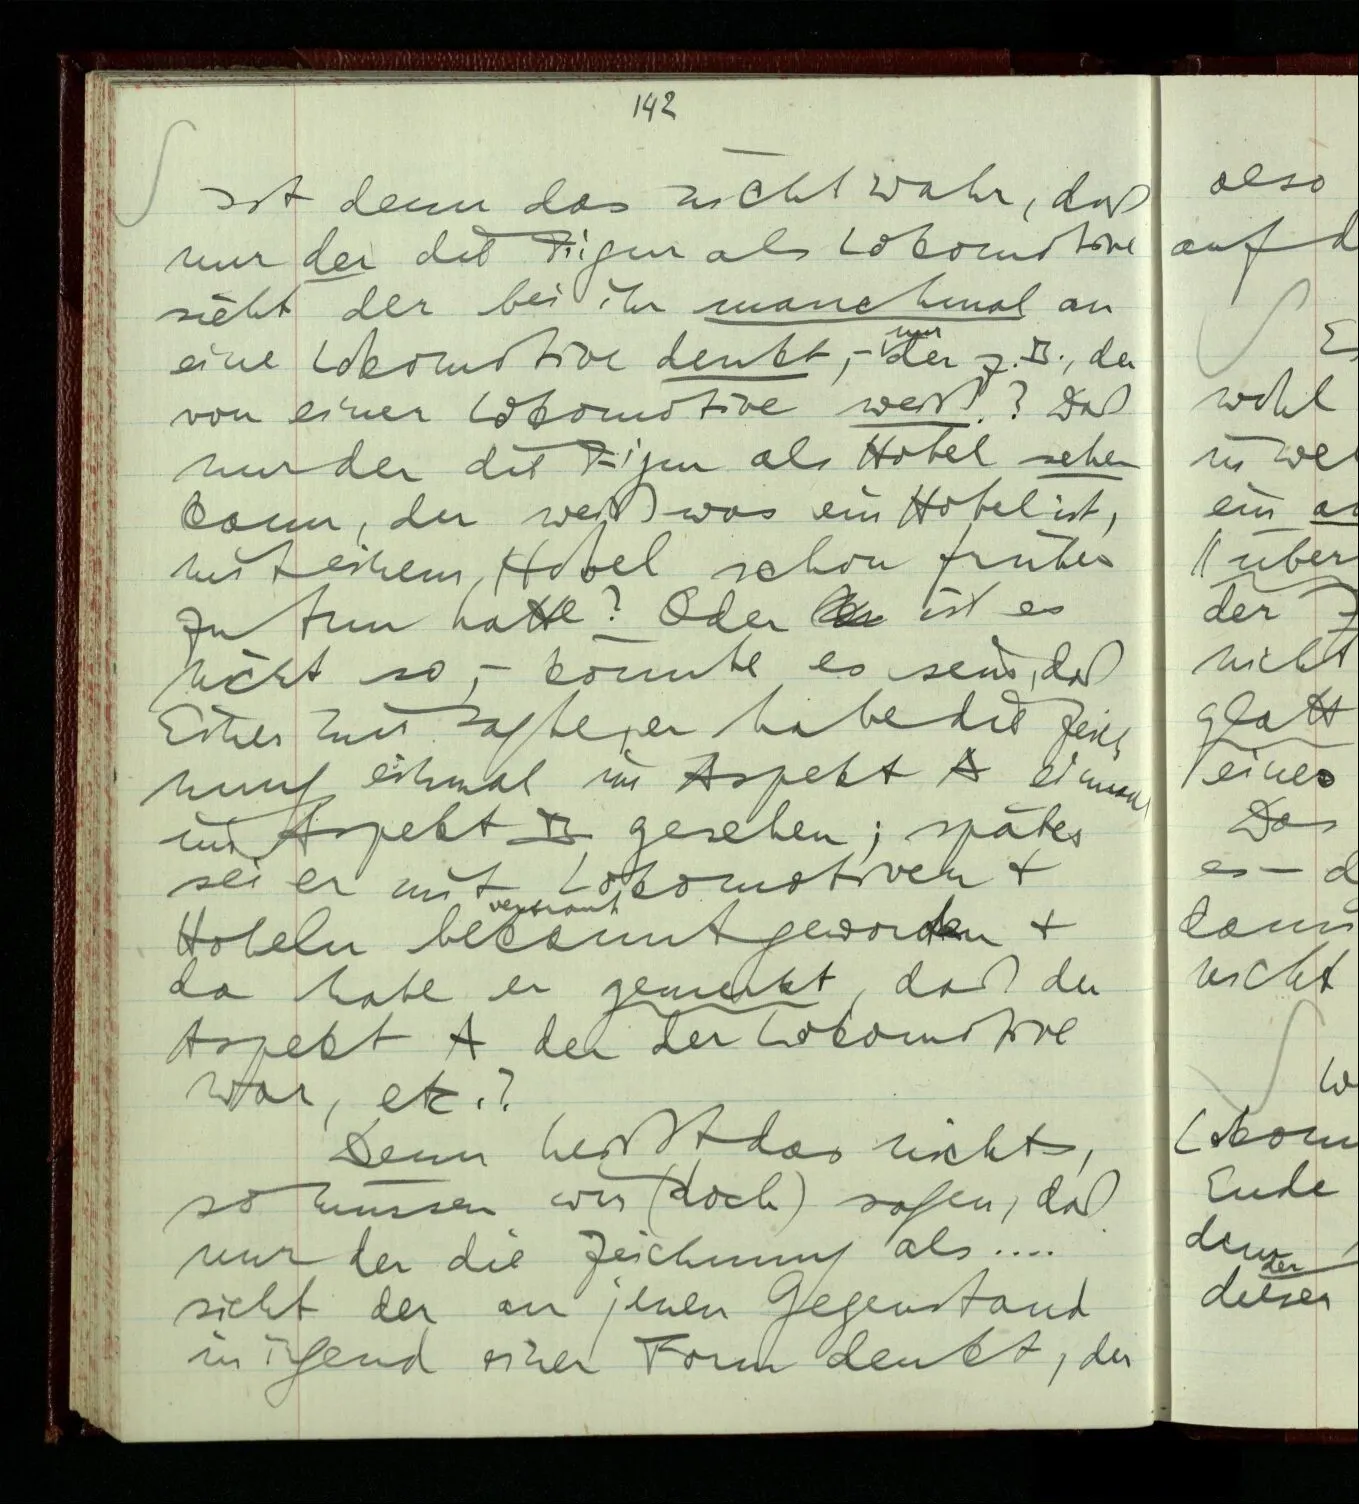 142
Ist denn das nicht wahr, daß
nur der die Figur als Lokomotive
sieht der bei ihr manchmal an
eine Lokomotive denkt, – nur der z.B., der
von einer Lokomotive weiß? Daß
nur der die Figur als Hobel sehen
kann, der weiß was ein Hobel ist,
mit einem Hobel schon früher
zu tun hatte? Oder ist es
nicht so, – könnte es sein, daß
Einer mir sagte, er habe die Zeich
nung einmal im Aspekt A einmal
im Aspekt B gesehen; später
sei er mit Lokomotiven +
vertraut
Hobeln bekannt geworden +
da habe er gemerkt, daß der
Aspekt A der der Lokomotive
war, etc.?
Denn heißt das nichts,
so müssen wir (doch) sagen, daß
nur der die Zeichnung als ....
sieht der an jenen Gegenstand
in irgend einer Form denkt, der
also
auf d
Es
wohl
in wel
ein
über
der
nicht
glatt
eines
Das
es – d
kann
nicht
W
Lokom
Ende
denn
der
dieser